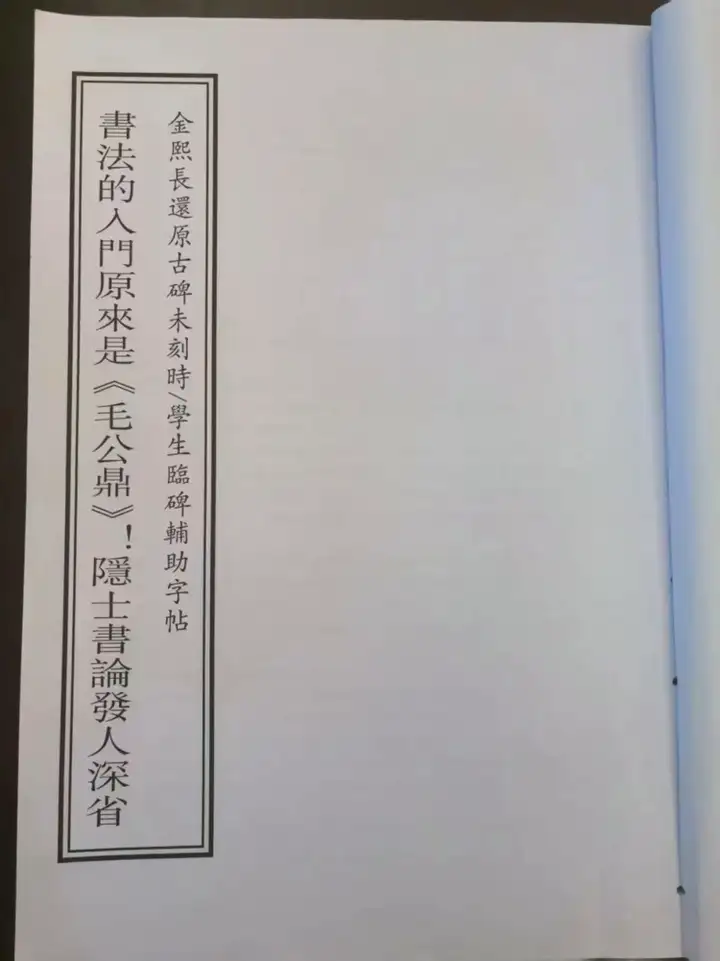 金熙長還原古碑未刻時/學生臨碑輔助字帖
書法的入門原來是《毛公鼎》！隱士書論發人深省